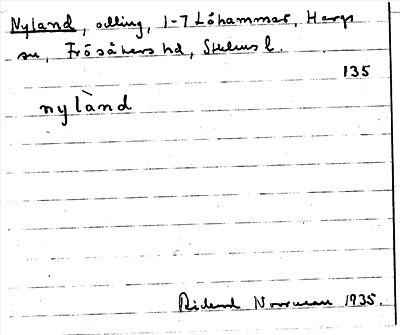 Nyland, odling, 1-7 Löhammar, Hargs
sn, Frösåkers hd, Sthlms l.
135
nylànd
Rickard Norrman 1935.